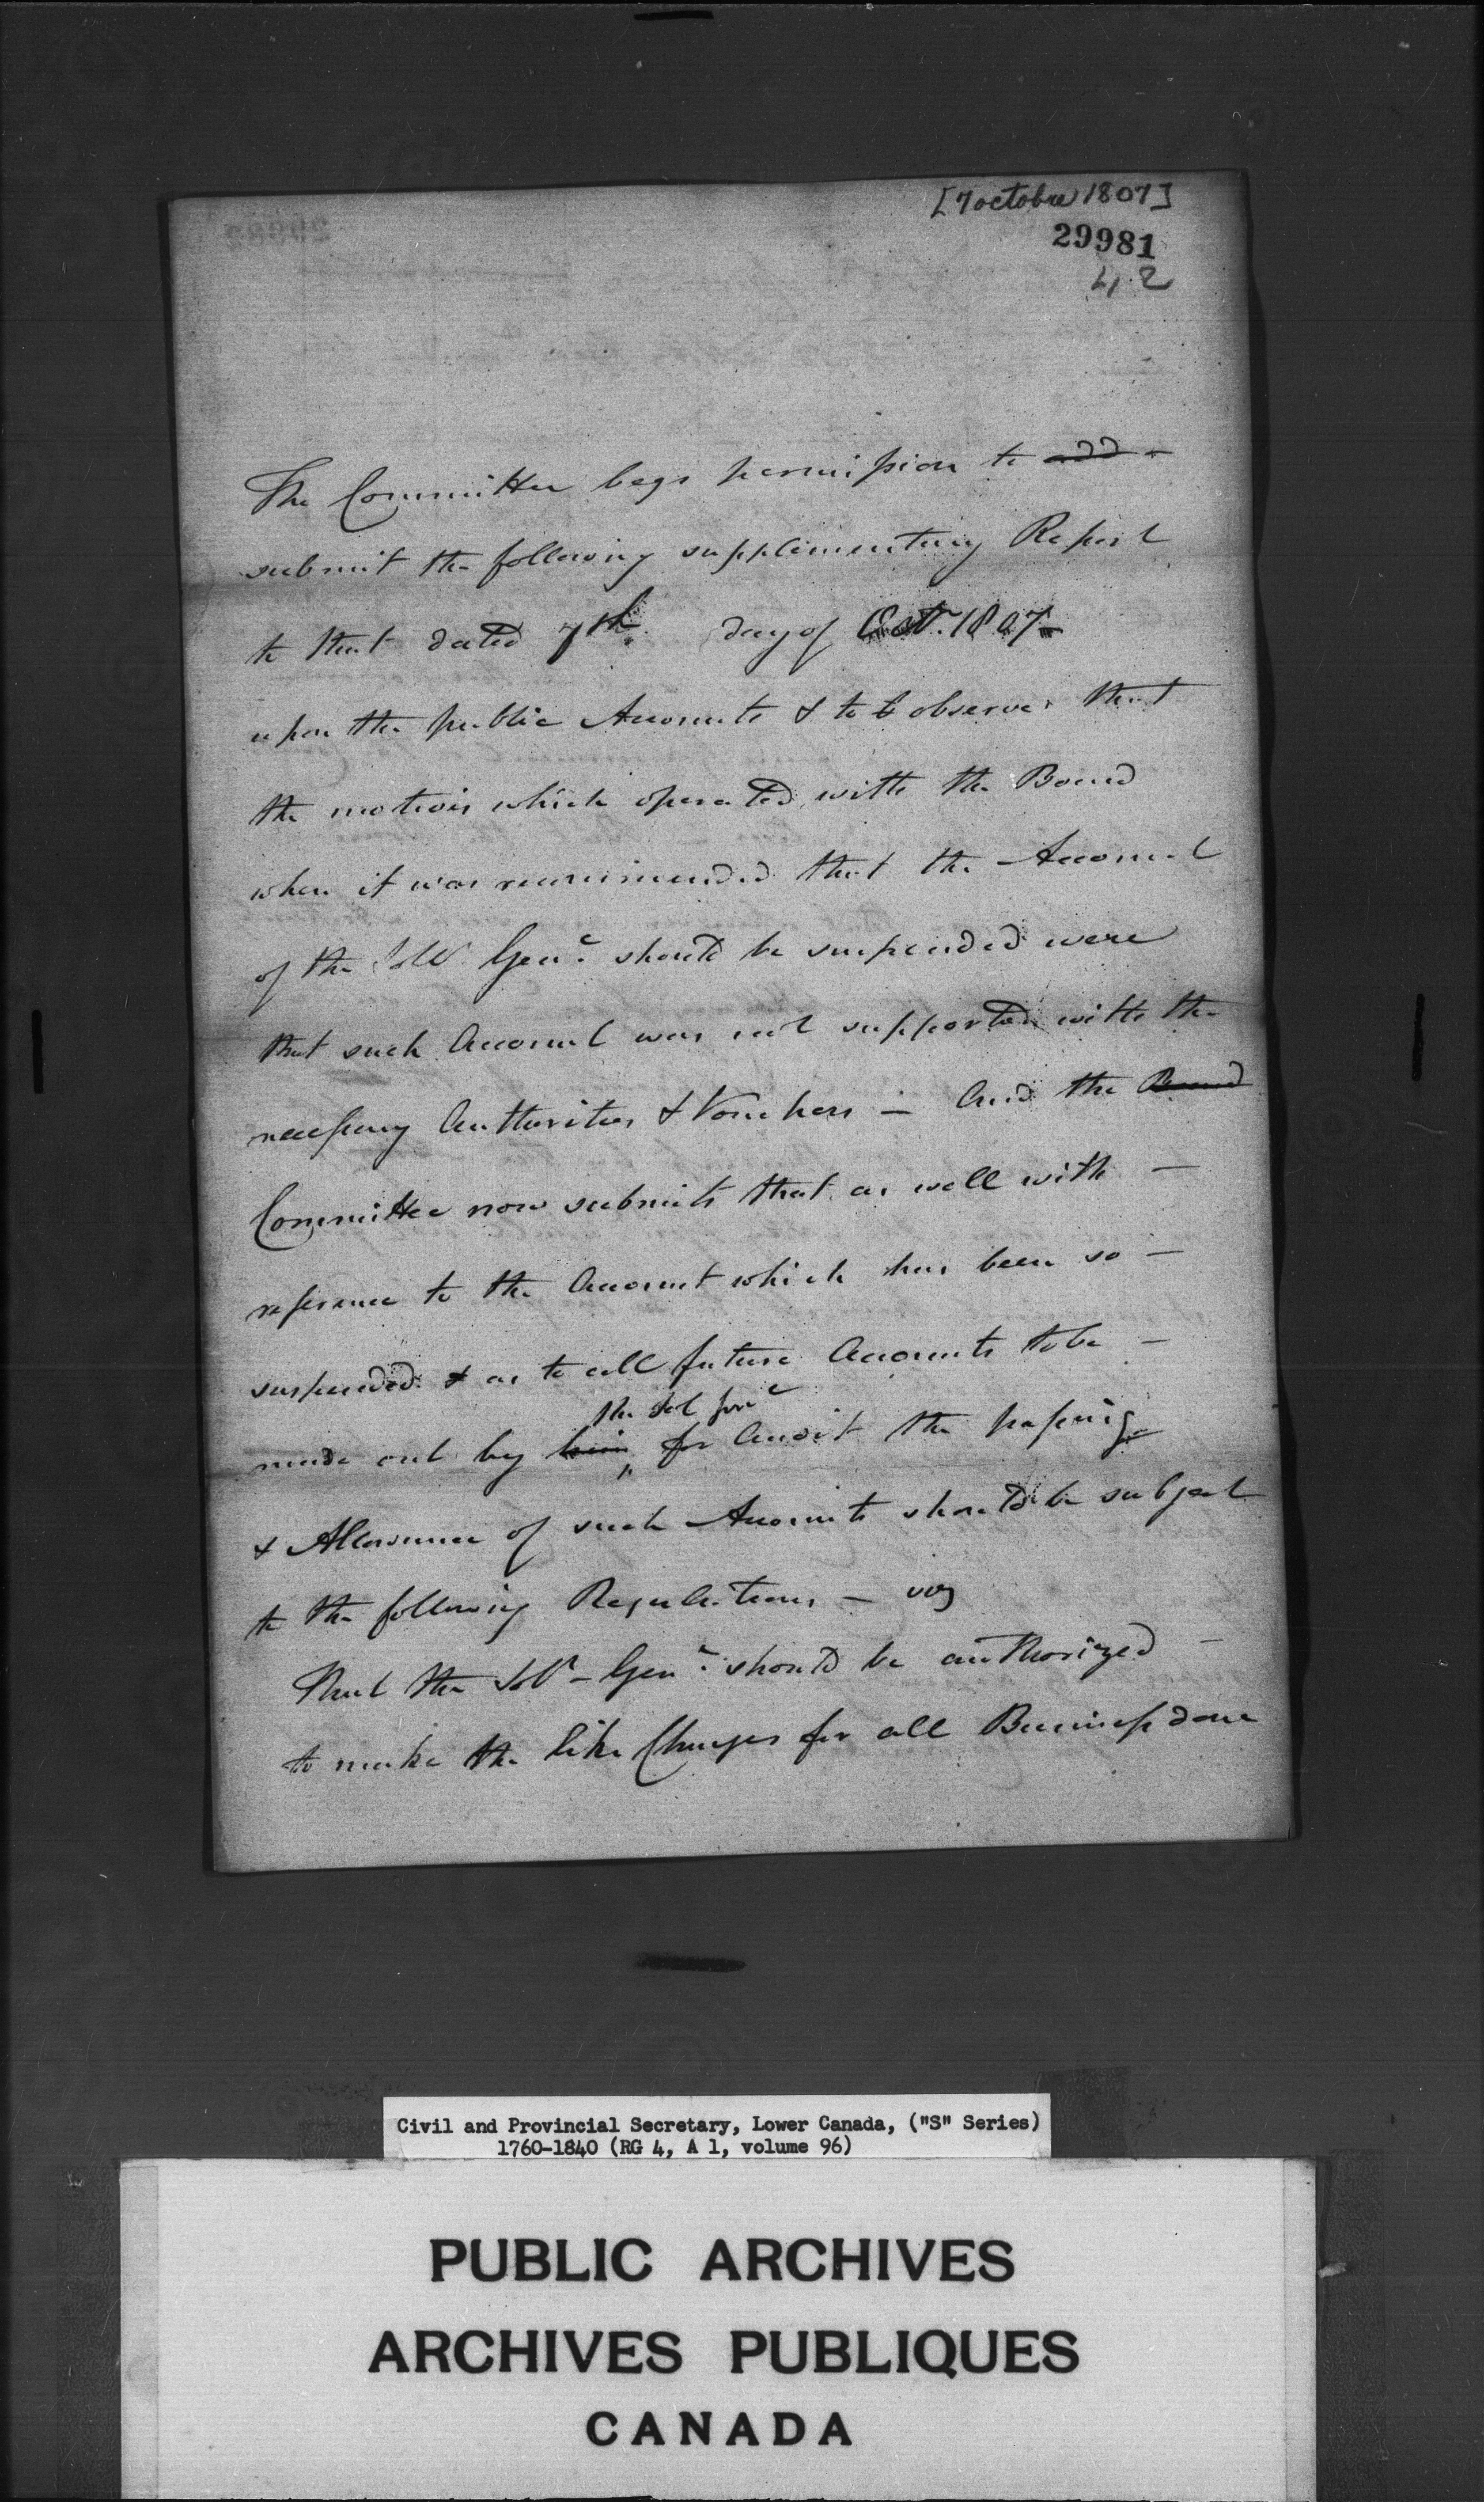 [7 octobre 1807]
29981
42
The Committee begs permission to add -
submit the following supplimentary Report
to that dated 7th day of Oct. 1807 -
upon the public Accounts & to observe that
the motives which operated with the Board
when it was recommended that the Account
of the Solr Genl should be suspended were
that such Account was not supported with the
necessary Authorities & Vouchers - And the Board
Committee now submits that as well with -
reference to the Account which has been so -
suspended & as to all future Accounts to be -
the Sol Genl
made out by him for Audit the passing
& Allowance of such Accounts should be subject
to the following Regulations - viz
That the Solr - Genl should be authorized -
to make the like Charges for all Business done
Civil and Provincial Secretary, Lower Canada, ("S" Series)
1760-1840 (RG 4, A 1, volume 96)
PUBLIC ARCHIVES
ARCHIVES PUBLIQUES
CANADA